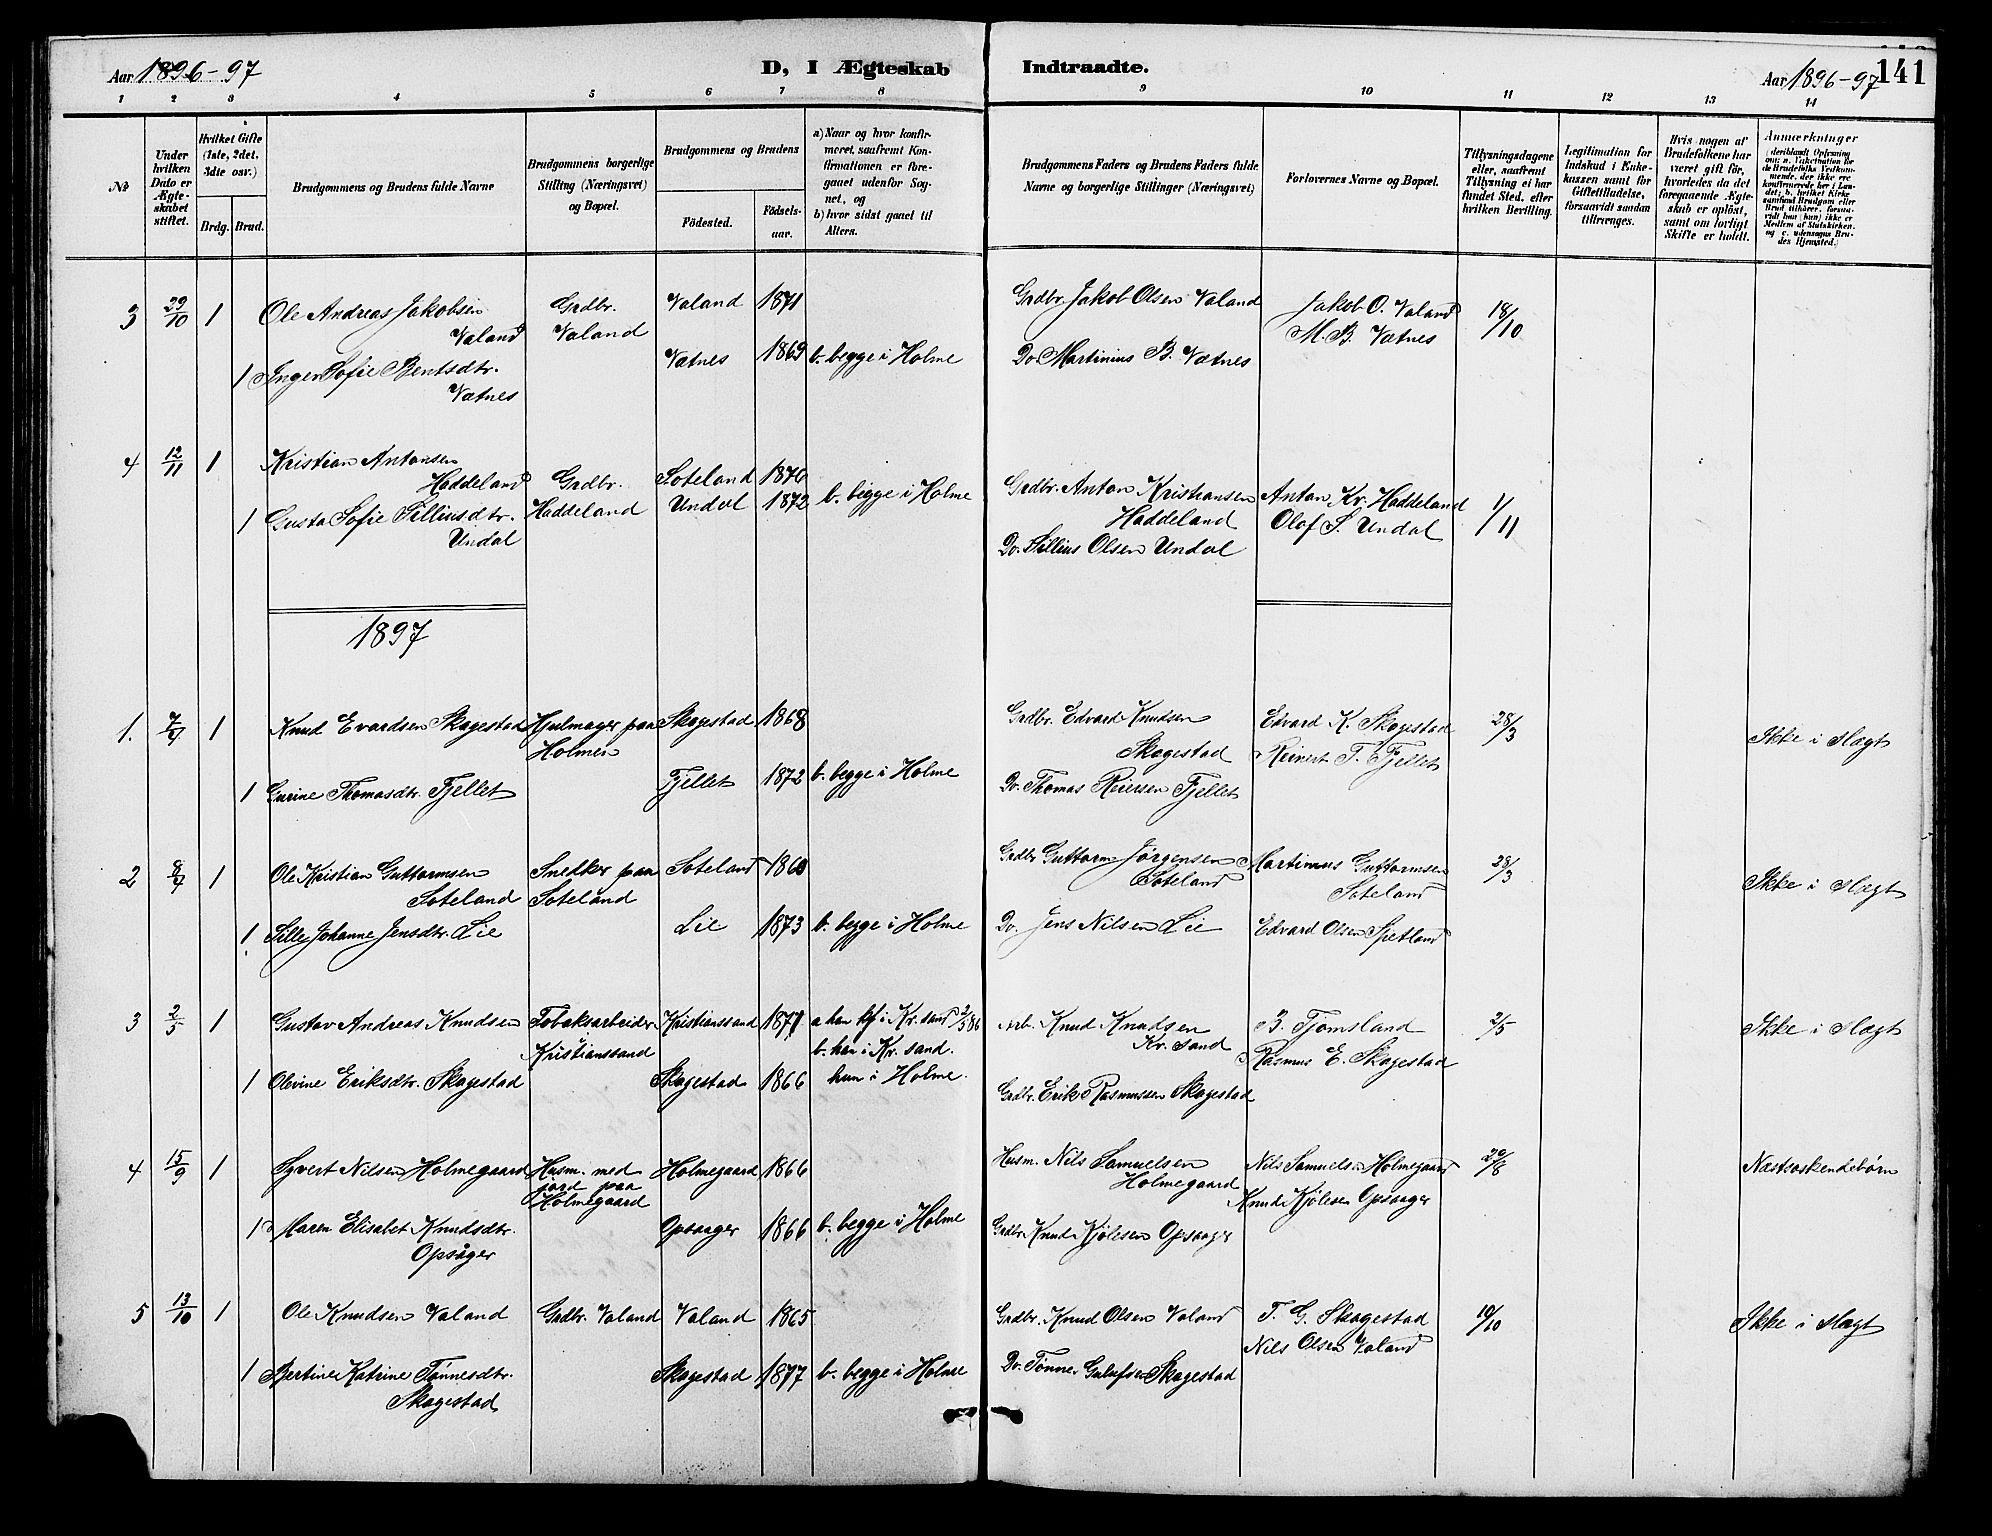 Aar 1896-97
D, I Ægteskab Indtraadte.
Aar 1896-97
141
1 2 3 4 5 6 7 8 9 10 11 12 13 14
№
Under hvilken Dato er Ægteskabet stiftet.
Hvilket Gifte (1ste, 2det, 3dte osv.)
Brdg. Brud.
Brudgommens og Brudens fulde Navne
Brudgommens borgerlige Stilling (Næringsvei) og Bopæl.
Brudgommens og Brudens
Födested. Födselsaar.
a) Naar og hvor konfirmeret, saafremt Konfirmationen er foregaaet udenfor Sognet, og
b) hvor sidst gaaet til Alters.
Brudgommens Faders og Brudens Faders fulde Navne og borgerlige Stillinger (Næringsvei)
Forlovernes Navne og Bopæl.
Tillysningsdagene eller, saafremt Tillysning ei har fundet Sted, efter hvilken Bevilling.
Legitimation for Indskud i Enkekassen samt for Giftetilladelse, forsaavidt saadan tiltrænges.
Hvis nogen af Brudefolkene har været gift før, hvorledes da det foregaaende Ægteskab er oplöst, samt om lovligt Skifte er holdt.
Anmærkninger
3 29/10 1 Ole Andreas Jakobsen Valand Grdbr. Valand Valand 1871 Grdbr. Jakob Olsen Valand Jakob O. Valand 18/10
1 Inger Sofie Bentsdtr. Vatnes Vatnes 1869 b. begge i Holme Do. Martinius B. Vatnes M. B. Vatnes
4 12/11 1 Kristian Antonsen Haddeland Grdbr. Haddeland Soteland 1870 b. begge i Holme Grdbr. Anton Kristiansen Haddeland Anton Kr. Haddeland 1/11
1 Gusta Sofie Silliusdtr. Undal Undal 1872 Do. Sillius Olsen Undal Olaf S. Undal
1897
1. 7/4 1 Knud Evardsen Skagestad Hjulmager paa Holmen Skagestad 1868 Grdbr. Edvard Knudsen Skagestad Edvard K. Skagestad 28/3 Ikke i Slægt
1 Gurine Thomasdtr. Fjellet Fjellet 1872 b. begge i Holme Do. Thomas Reiersen Fjellet Reinert T. Fjellet
2 8/4 1 Ole Kristian Guttormsen Soteland Snedker paa Soteland Soteland Grdbr Guttorm Jørgensen Soteland Martinus Guttormsen Soteland 28/3 Ikke i Slægt
1 Sille Johanne Jensdtr. Lie Lie 1873 b. begge i Holme Do. Jens Nilsen Lie Edvard Olsen Spetland
3 2/5 1 Gustav Andreas Knudsen Tobaksarbeider Kristianssand Kristianssand 1871 a han kf i Kr. sand 2/5 86 b. han i Kr. sand. Arb. Knud Knudsen Kr. sand B. Tjomsland 2/5 Ikke i Slægt
1 Olevine Eriksdtr. Skagestad Skagestad 1866 hun i Holme. Grdbr. Erik Rasmussen Skagestad Rasmus E. Skagestad
4 15/9 1 Syvert Nilsen Holmegaard Husm. med jord paa Holmegaard Holmegaard 1866 Husm. Nils Samuelsen Holmegaard Nils Samuelsen Holmegaard Næstsøskendebørn
1 Maren Elisabet Knudsdtr. Opsåger Opsaager 1866 b. begge i Holme Grdbr. Knud Kjølesen Opsaager Knud Kjølesen Opsaager
5 13/10 1 Ole Knudsen Valand Grdbr. Valand Valand 1865 Grdbr. Knud Olsen Valand T. G. Skagestad 10/10 Ikke i Slægt
1 Bertine Katrine Tønnesdtr. Skagestad Skagestad 1877 b. begge i Holme Do. Tønnes Skagestad Nils Olsen Valand